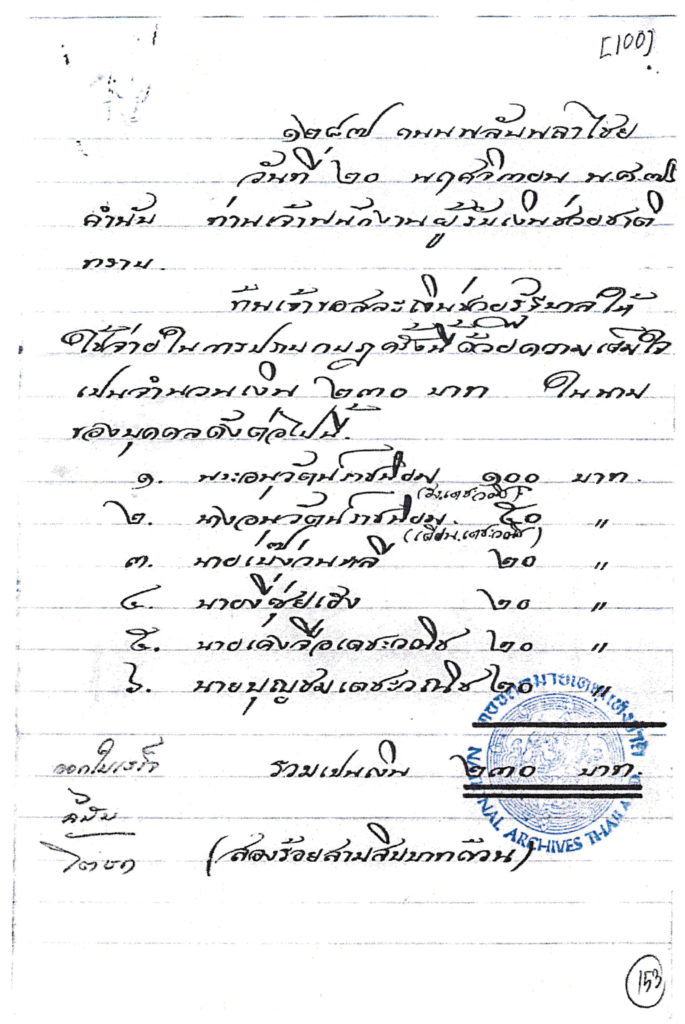 [100]
๑๒๘๗ ถนนพลับพลาไชย
วันที่ ๒๐ พฤศจิกายน พ.ศ. ๗๖
คำนับ ท่านเจ้าพนักงานผู้รับเงินช่วยชาติ
ทราบ.
ข้าพเจ้าขอสละเงินช่วยรัฐบาลให้
ใช้จ่ายในการปราบกบฎครั้งนี้ด้วยความเต็มใจ
เป็นจำนวนเงิน ๒๓๐ บาท ในนาม
ของบุคคลดังต่อไปนี้.
๑. พระอนุวัตน์ราชนิยม ๑๐๐ บาท.
(ฮง เตชะวณิช)
๒. นางอนุวัตน์ราชนิยม. ๕๐ "
(เตชะวณิช)
๓. นาย ๒๐ "
๔. นาย ๒๐ "
๕. นาย เตชะวณิช ๒๐ "
๖. นายบุญชม เตชะวณิช ๒๐ "
ออกใบเสร็จ รวมเป็นเงิน ๒๓๐ บาท.
(สองร้อยสามสิบบาทถ้วน)
หอจดหมายเหตุแห่งชาติ
NATIONAL ARCHIVES THAILAND
153